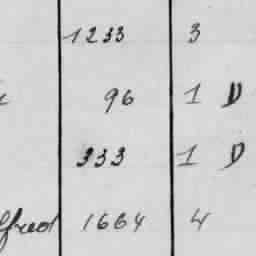 1233 3
96 1 D
333 1 D
1664 4